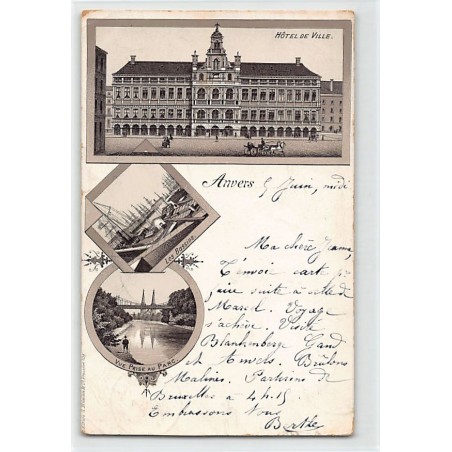 HÔTEL DE VILLE.
Anvers 5 Juin, midi
LES BASSINS.
Ma chère Jeanne,
T'envoie carte pr
faire suite à celle de
Marcel. Voyage
s'achève. Visité
Blankenberg Gand
et Anvers. Brûlons
Malines. Partirons de
Bruxelles à 4h.15
Embrassons Vous
Berthe
VUE PRISE AU PARC.